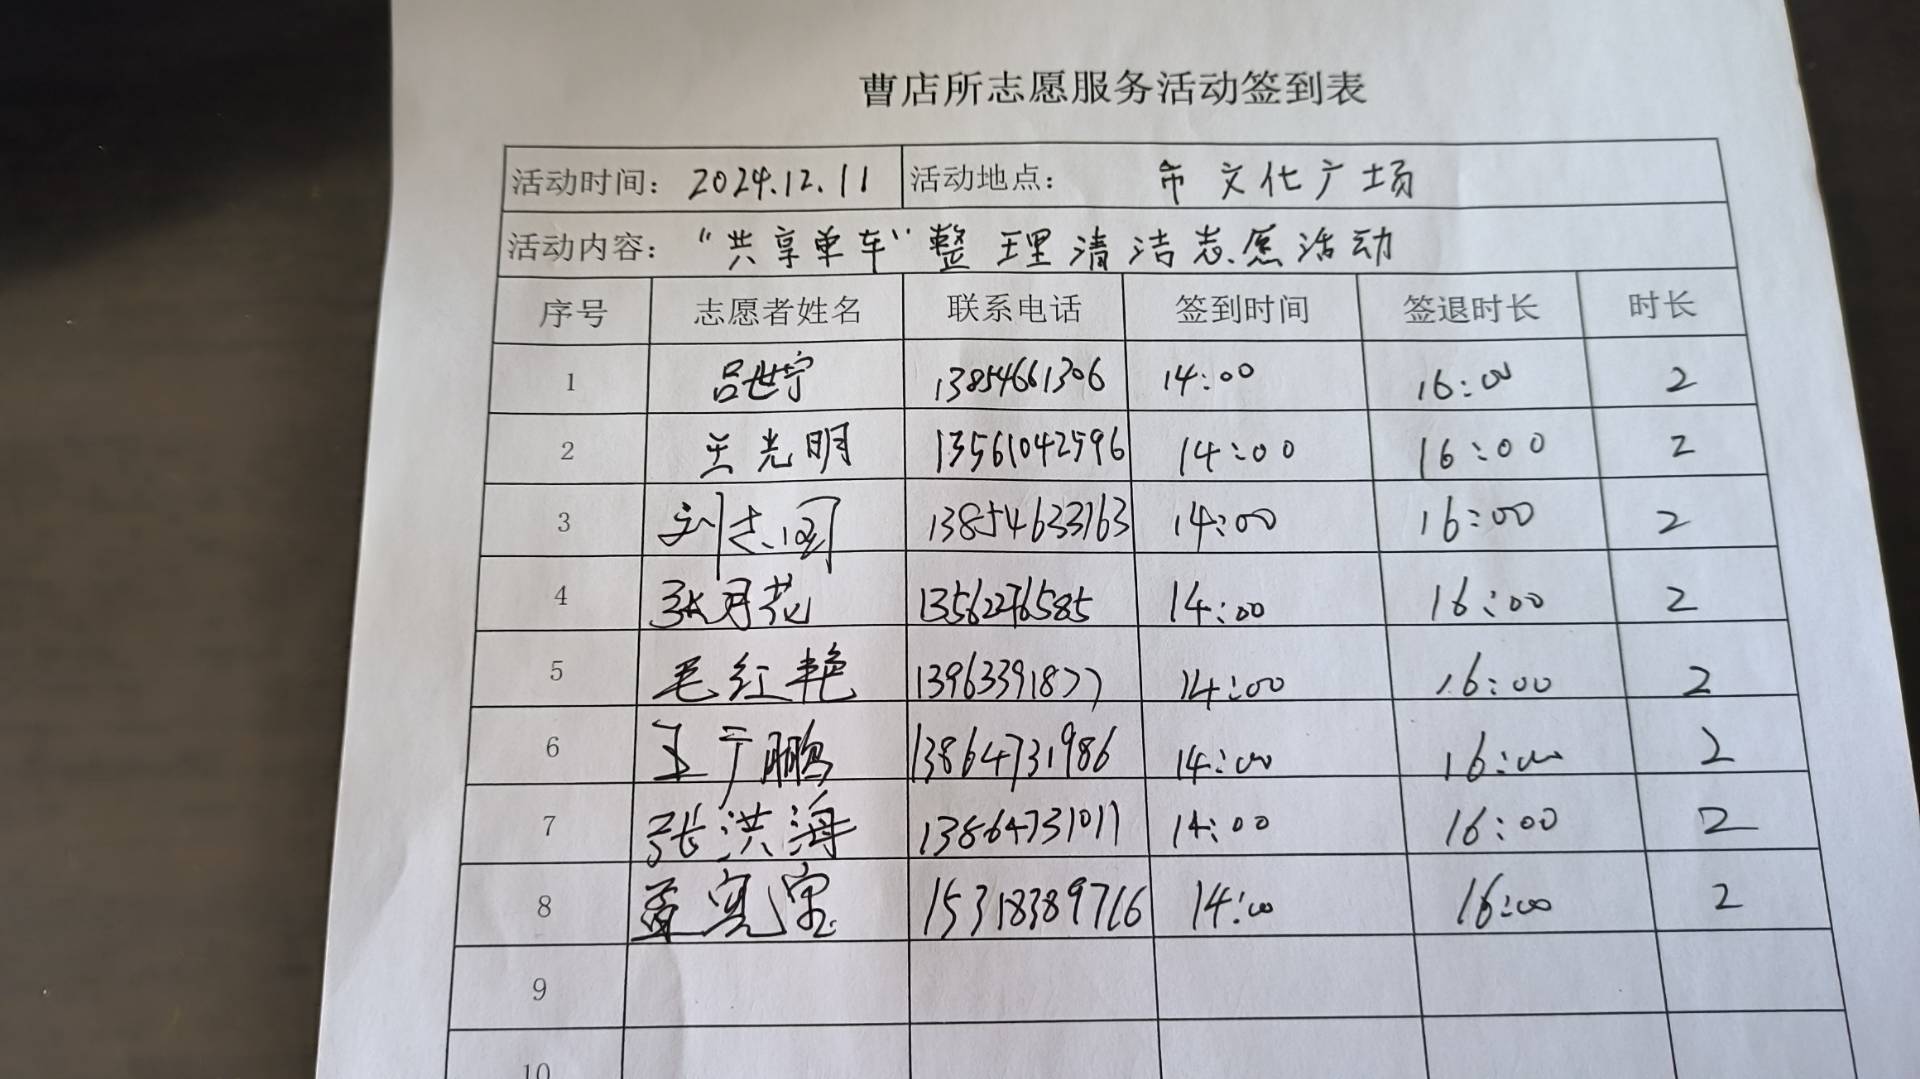 曹店所志愿服务活动签到表
活动时间：2024.12.11 活动地点：市文化广场
活动内容：“共享单车”整理清洁志愿活动
序号 志愿者姓名 联系电话 签到时间 签退时长 时长
1 吕世宁 13854661306 14:00 16:00 2
2 王光明 13561042596 14:00 16:00 2
3 刘志国 13854633763 14:00 16:00 2
4 张月花 13562276585 14:00 16:00 2
5 毛红艳 13963391877 14:00 16:00 2
6 王广鹏 13864731986 14:00 16:00 2
7 张洪海 13864731017 14:00 16:00 2
8 15318389766 14:00 16:00 2
9
10